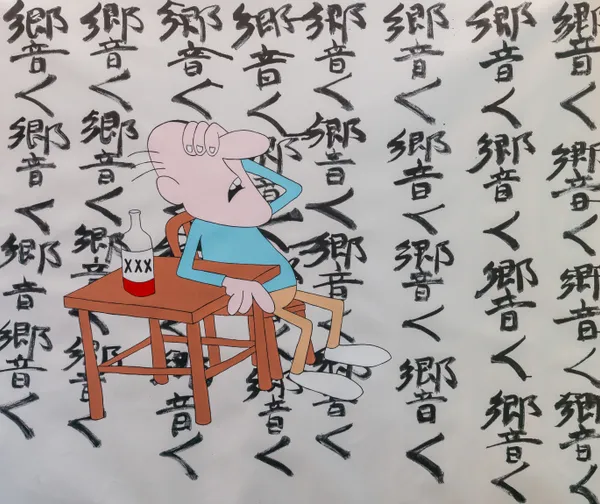 響く響く響く響く
響く響く響く響く
響く響く響く響く
響く響く響く響く
響く響く響く
響く響く
響く響く響く響く
響く響く響く響く
XXX